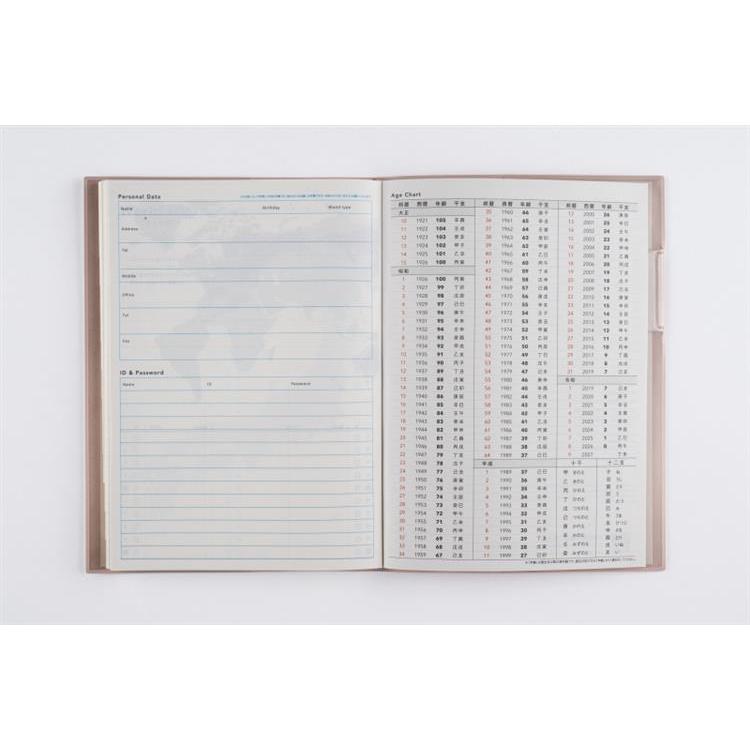 Personal Data
Name Birthday Blood type
Address
Tel
Mobile
Office
Tel
Fax
ID & Password
Name ID Password
Age Chart
和暦 西暦 年齢 干支
大正
10 1921 105 辛酉
11 1922 104 壬戌
12 1923 103 癸亥
13 1924 102 甲子
14 1925 101 乙丑
15 1926 100 丙寅
昭和
1 1926 100 丙寅
2 1927 99 丁卯
3 1928 98 戊辰
4 1929 97 己巳
5 1930 96 庚午
6 1931 95 辛未
7 1932 94 壬申
8 1933 93 癸酉
9 1934 92 甲戌
10 1935 91 乙亥
11 1936 90 丙子
12 1937 89 丁丑
13 1938 88 戊寅
14 1939 87 己卯
15 1940 86 庚辰
16 1941 85 辛巳
17 1942 84 壬午
18 1943 83 癸未
19 1944 82 甲申
20 1945 81 乙酉
21 1946 80 丙戌
22 1947 79 丁亥
23 1948 78 戊子
24 1949 77 己丑
25 1950 76 庚寅
26 1951 75 辛卯
27 1952 74 壬辰
28 1953 73 癸巳
29 1954 72 甲午
30 1955 71 乙未
31 1956 70 丙申
32 1957 69 丁酉
33 1958 68 戊戌
34 1959 67 己亥
和暦 西暦 年齢 干支
35 1960 66 庚子
36 1961 65 辛丑
37 1962 64 壬寅
38 1963 63 癸卯
39 1964 62 甲辰
40 1965 61 乙巳
41 1966 60 丙午
42 1967 59 丁未
43 1968 58 戊申
44 1969 57 己酉
45 1970 56 庚戌
46 1971 55 辛亥
47 1972 54 壬子
48 1973 53 癸丑
49 1974 52 甲寅
50 1975 51 乙卯
51 1976 50 丙辰
52 1977 49 丁巳
53 1978 48 戊午
54 1979 47 己未
55 1980 46 庚申
56 1981 45 辛酉
57 1982 44 壬戌
58 1983 43 癸亥
59 1984 42 甲子
60 1985 41 乙丑
61 1986 40 丙寅
62 1987 39 丁卯
63 1988 38 戊辰
64 1989 37 己巳
平成
1 1989 37 己巳
2 1990 36 庚午
3 1991 35 辛未
4 1992 34 壬申
5 1993 33 癸酉
6 1994 32 甲戌
7 1995 31 乙亥
8 1996 30 丙子
9 1997 29 丁丑
10 1998 28 戊寅
11 1999 27 己卯
和暦 西暦 年齢 干支
12 2000 26 庚辰
13 2001 25 辛巳
14 2002 24 壬午
15 2003 23 癸未
16 2004 22 甲申
17 2005 21 乙酉
18 2006 20 丙戌
19 2007 19 丁亥
20 2008 18 戊子
21 2009 17 己丑
22 2010 16 庚寅
23 2011 15 辛卯
24 2012 14 壬辰
25 2013 13 癸巳
26 2014 12 甲午
27 2015 11 乙未
28 2016 10 丙申
29 2017 9 丁酉
30 2018 8 戊戌
31 2019 7 己亥
令和
1 2019 7 己亥
2 2020 6 庚子
3 2021 5 辛丑
4 2022 4 壬寅
5 2023 3 癸卯
6 2024 2 甲辰
7 2025 1 乙巳
8 2026 0 丙午
9 2027 丁未
十干 十二支
甲 きのえ 子 ね
乙 きのと 丑 うし
丙 ひのえ 寅 とら
丁 ひのと 卯 う
戊 つちのえ 辰 たつ
己 つちのと 巳 み
庚 かのえ 午 うま
辛 かのと 未 ひつじ
壬 みずのえ 申 さる
癸 みずのと 酉 とり
戌 いぬ
亥 い